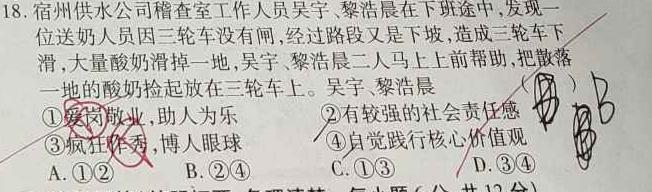 18. 宿州供水公司稽查室工作人员吴宇、黎浩晨在下班途中,发现一
位送奶人员因三轮车没有闸,经过路段又是下坡,造成三轮车下
滑,大量酸奶滑掉一地,吴宇、黎浩晨二人马上上前帮助,把散落
一地的酸奶捡起放在三轮车上。吴宇、黎浩晨 ( B ) B
①爱岗敬业,助人为乐 ②有较强的社会责任感
③疯狂作秀,博人眼球 ④自觉践行核心价值观
A. ①② B. ②④ C. ①③ D. ③④